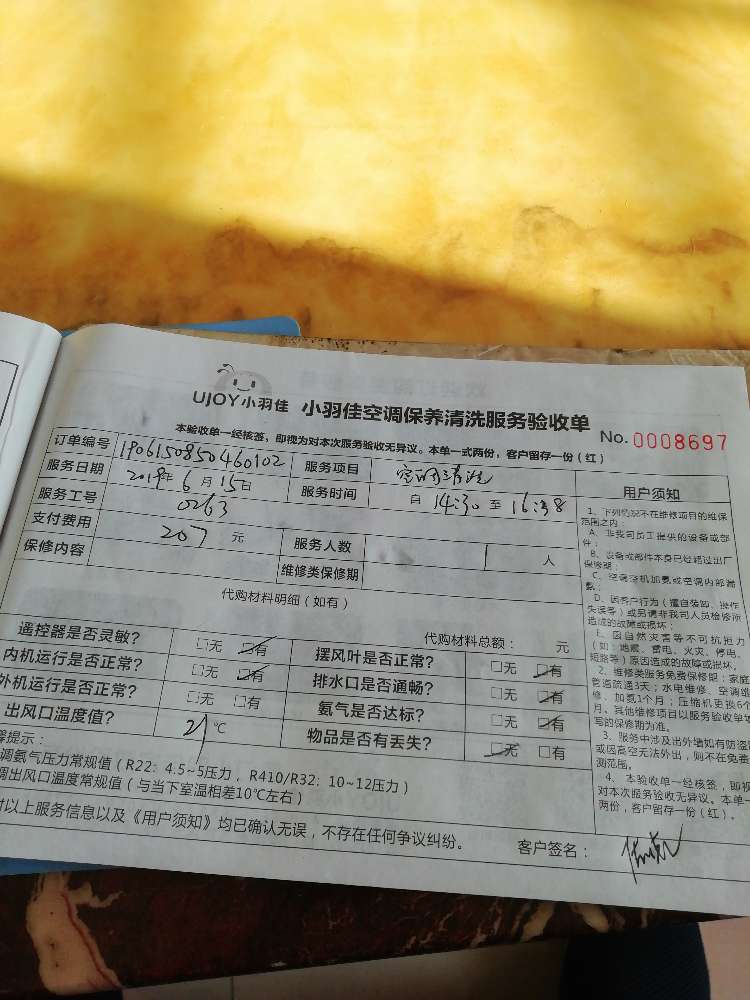 UJOY小羽佳 小羽佳空调保养清洗服务验收单
No. 0008697
本验收单一经核签，即视为对本次服务验收无异议。本单一式两份，客户留存一份（红）
订单编号 1906150850460102 服务项目 空调清洗
服务日期 2019年6月15日 服务时间 自 14:30 至 16:38
服务工号 0263
支付费用 207 元 服务人数 人
保修内容 维修类保修期
代购材料明细（如有）
代购材料总额： 元
遥控器是否灵敏? □无 □有 摆风叶是否正常? □无 □有
内机运行是否正常? □无 □有 排水口是否通畅? □无 □有
外机运行是否正常? □无 □有 氨气是否达标? □无 □有
出风口温度值? 21 ℃ 物品是否有丢失? □无 □有
提示：
调氨气压力常规值（R22：4.5~5压力，R410/R32：10~12压力）
调出风口温度常规值（与当下室温相差10℃左右）
以上服务信息以及《用户须知》均已确认无误，不存在任何争议纠纷。
客户签名：
用户须知
1、下列情况不在维修项目的维保
范围之内：
A、非我司员工提供的设备或部
件；
B、设备或部件本身已经超过出厂
保修期；
C、空调空机加氨或空调内部漏
氨；
D、因客户行为（擅自装卸、操作
失误等）或另请非我司人员检修所
造成的故障或损坏；
E、因自然灾害等不可抗拒力
（如：地震、雷电、火灾、停电、
短路等）原因造成的故障或损坏。
2、维修类服务免费保修期：家庭
管道疏通3天；水电维修、空调维
修、加氨1个月；压缩机更换6个
月、其他维修项目以服务验收单填
写的保修期为准。
3、服务中涉及出外墙如有防盗
或因高空无法外出，则不在免费
测范围。
4、本验收单一经核签，即视
对本次服务验收无异议。本单一
两份，客户留存一份（红）。